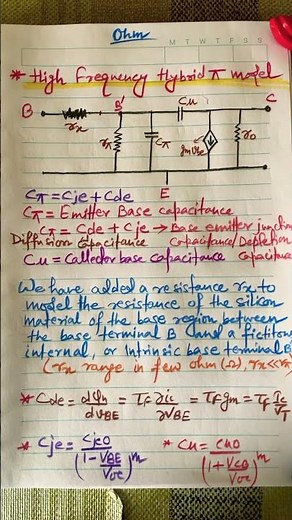 Ohm
M T W T F S S
* High Frequency Hybrid π model
B rx B' Cu C
rπ Cπ gmVbe ro
E
Cπ = Cje + Cde
Cπ = Emitter Base capacitance
Cπ = Cde + Cje → Base emitter junction
Diffusion Capacitance Capacitance/Depletion
Cu = Collector base capacitance Capacitance
We have added a resistance rx to
model the resistance of the silicon
material of the base region between
the base terminal B and a fictitous
internal, or intrinsic base terminal B'
(rx range in few ohm (Ω), rx<<rπ)
* Cde = dqn/dVBE = TF ∂ic/∂VBE = TF gm = TF Ic/VT
* Cje = Cjeo/(1-VBE/Voe)^m * Cu = Cuo/(1+VCB/Voc)^m